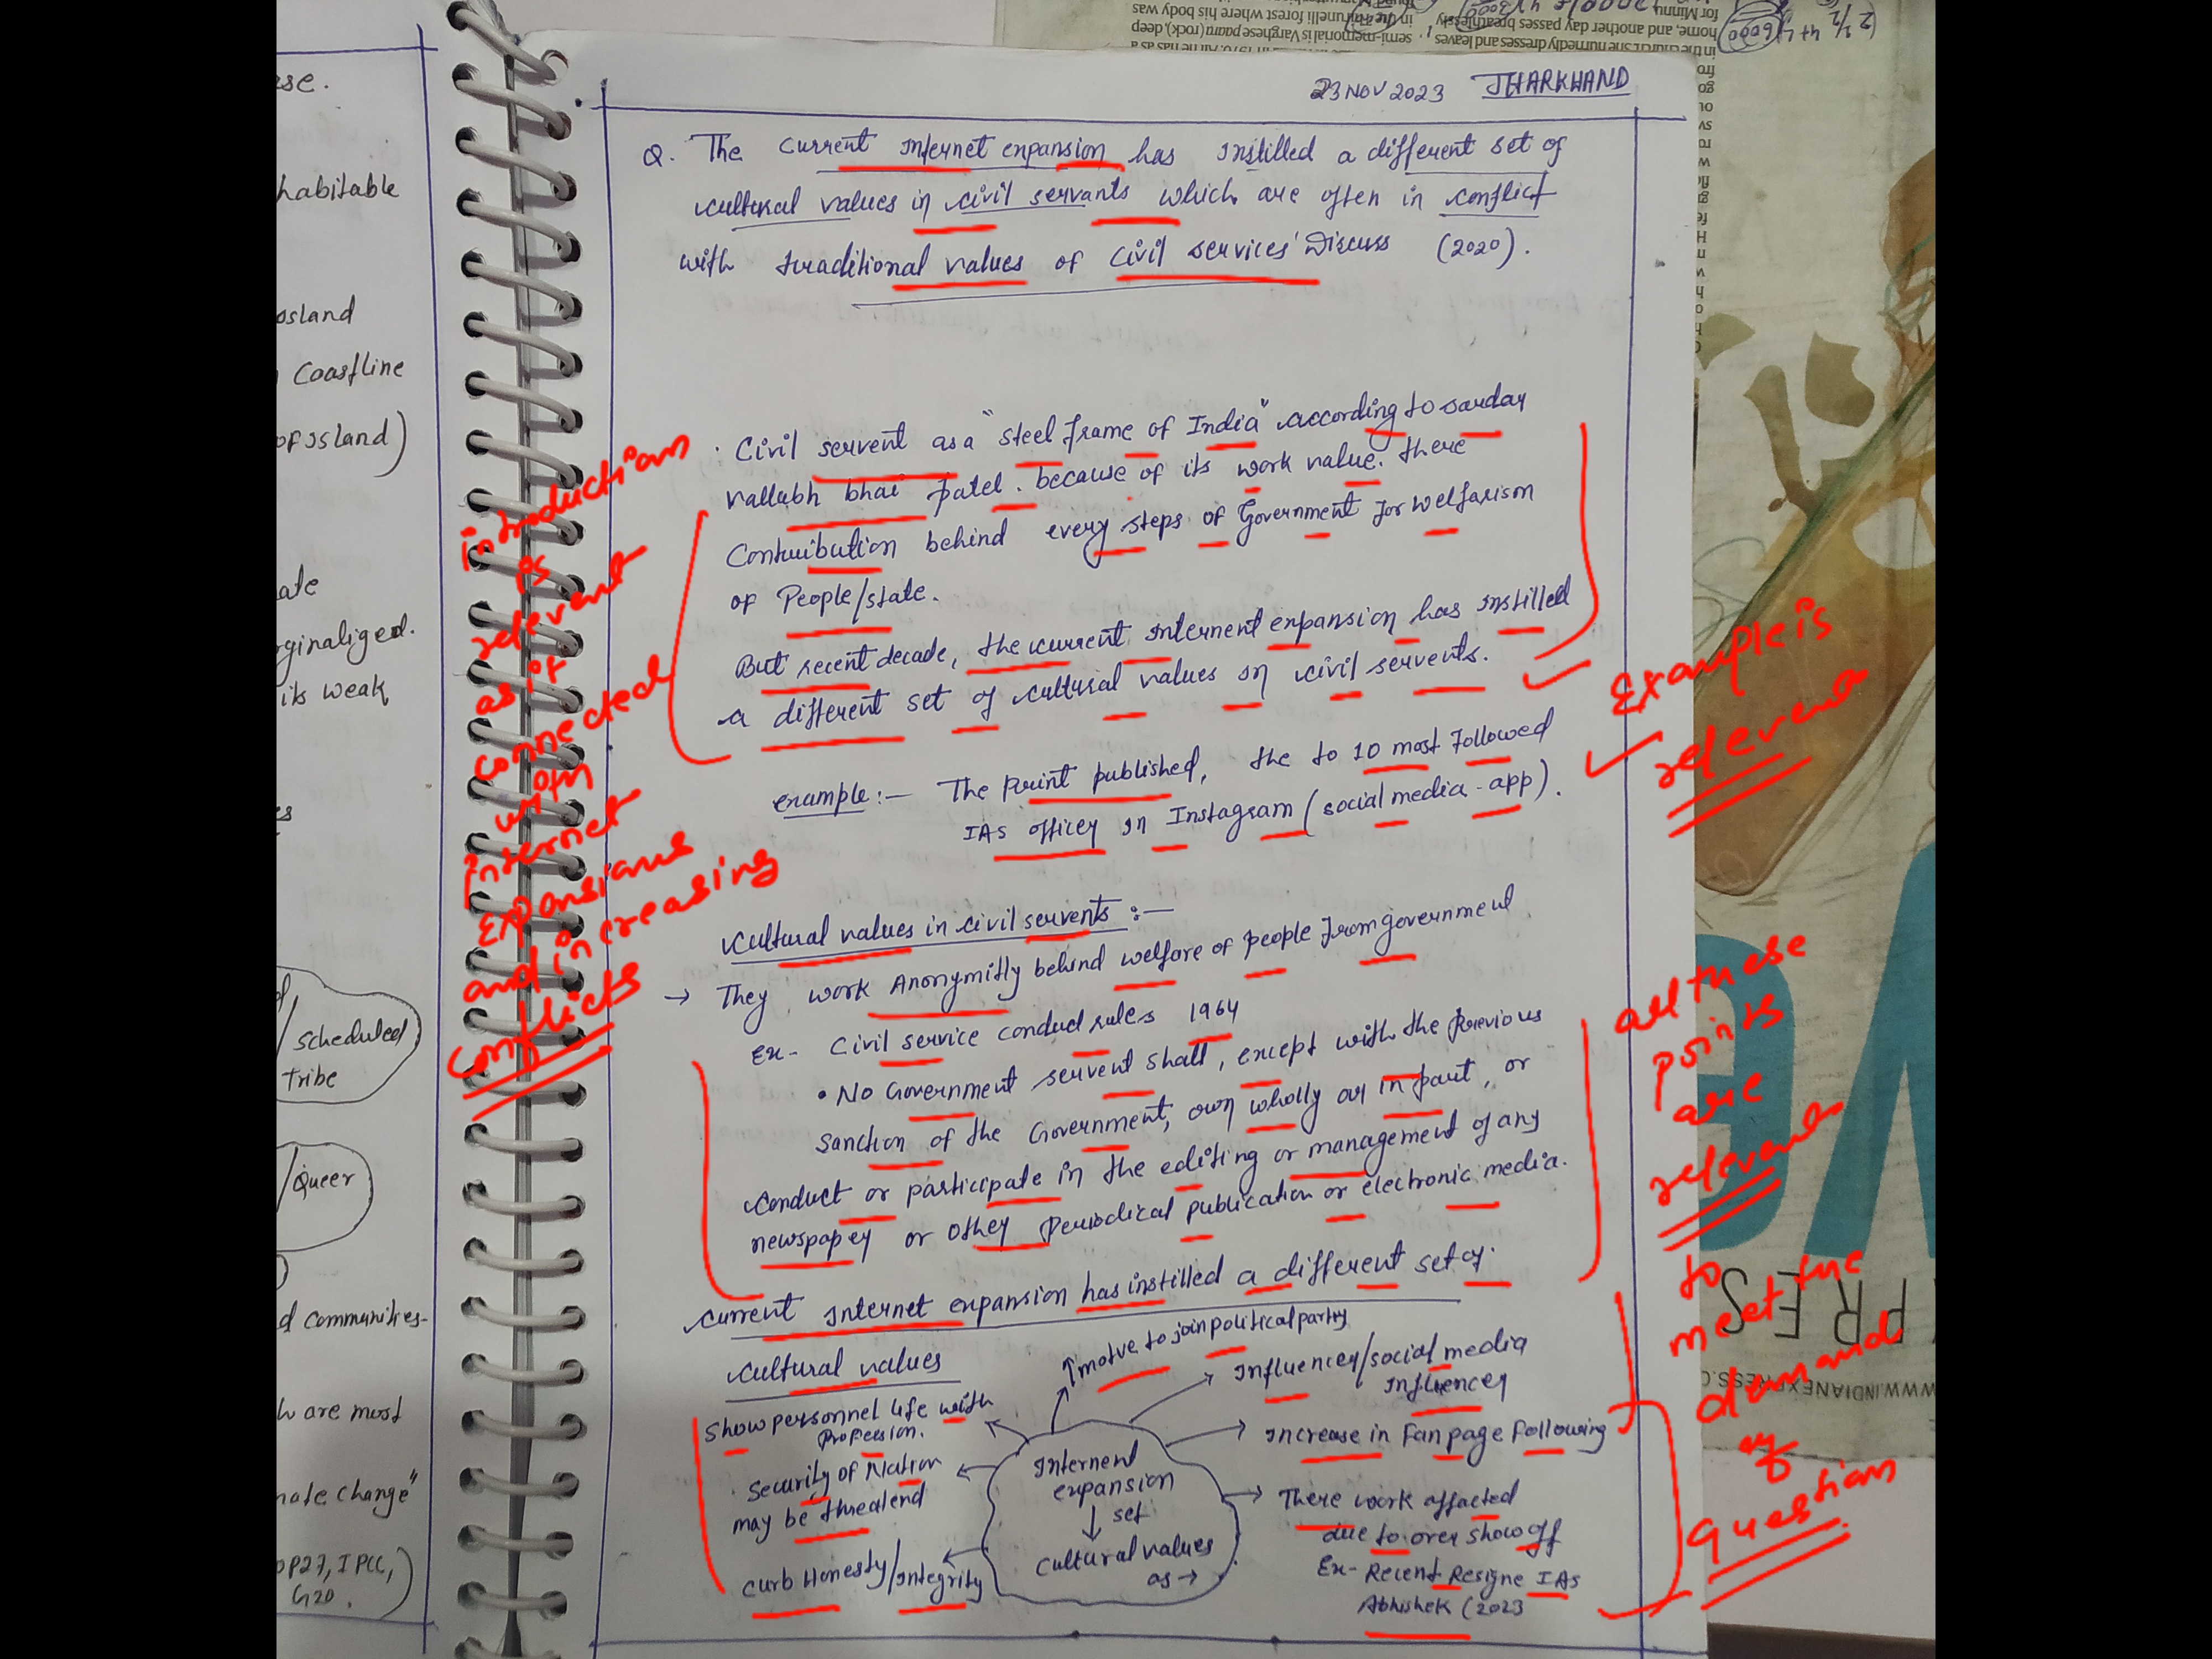 23 NOV 2023 JHARKHAND
Q. The current internet expansion has instilled a different set of
cultural values in civil servants which are often in conflict
with traditional values of civil services' Discuss (2020).
· Civil servent as a "steel frame of India" according to sarday
vallabh bhai patel. because of its work value. there
Contribution behind every steps of Government for welfarism
of People/state.
But recent decade, the current internent expansion has instilled
a different set of cultural values in civil servents.
example:— The Print published, the to 10 most followed
IAS officer in Instagram (social media-app).
cultural values in civil servents :—
→ They work Anonymitly behind welfare of people from government
Ex- Civil service conduct rules 1964
• No Government servent shall, except with the previous
sanction of the Government, own wholly or in part, or
conduct or participate in the editing or management of any
newspaper or other periodical publication or electronic media.
current internet expansion has instilled a different set of.
cultural values
↑ motve to join political party
Influencer/social media
Influencer
Show personnel life with
Profession.
Increase in Fan page following
Security of Nation
may be threatend
Internent
expansion
↓ set
cultural values
as →
There work affacted
due to over show off
Ex- Recent Resigne IAS
Abhishek (2023
curb Honesty/integrity
introduction
is
relevent
as it
connected
with
internet
expansions
and increasing
conflicts
Example is
all these
points
are
relevant
to
meet the
demand
of
question
habitable
Coastline
of island)
its weak
scheduled
tribe
/Queer
d communities-
h are most
nate change"
OP27, IPCC,
G20.)
for Minnu
home, and another day passes breathlessly
in the church. she hurriedly dresses and leaves
in the Thirunelli forest where his body was
semi-memorial is Varghese paara (rock), deep
6000
WWW.INDIANEXPRESS.C